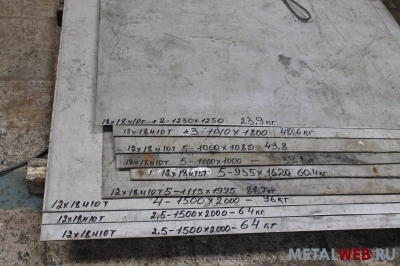 12х18н10т ≠2-1230×1250 23,9 кг
12х18н10т ≠3-1010×1800 40,6 кг
12х18н10т 5-1000×1080 43,8
12х18н10т 5-1000×1000 —
12х18н10т 5-935×1620 60.4 кг
12х18н10т 5-1115×1995
12х18н10т 4-1500×2000 — 96 кг
12х18н10т 2,5-1500×2000-64 кг
12х18н10т 2.5-1500×2000-64 кг
METALWEB.RU